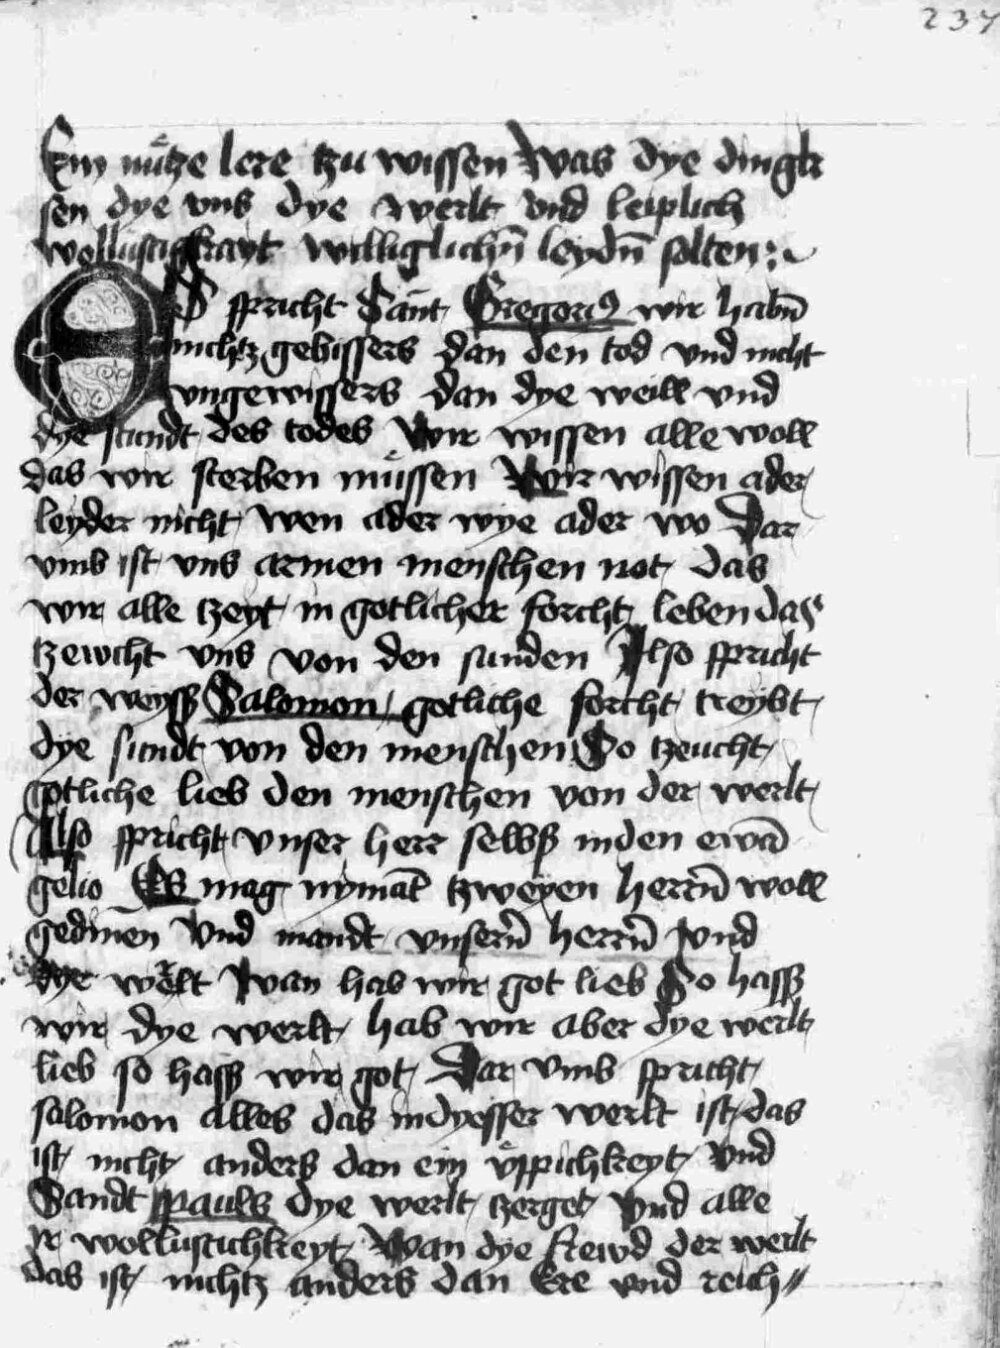 237
Ein nütze lere tzu wissen Was dye ding
sen dye vns dye werlt vnd leiplich
wollustigkayt williglichn̄ leydn̄ solten :~
ES spricht Sant Gregori9 wir habn̄
nichtz gebissers dan den tod vnd nicht
vngewissers dan dye weill vnd
dye stundt des todes Wir wissen alle woll
das wir sterben müssen Wir wissen ader
leyder nicht wen ader wye ader wo Dar
vmb ist vns armen menschen not das
wir alle tzeyt in gotlicher forcht leben das
tzewcht vns von den sunden Also spricht
der weyß Salomon gotliche forcht treybt
dye sundt von den menschen So tzeucht
gotliche lieb den menschen von der werlt
Also spricht vnser herr selbß inden ewā
gelio Es mag nymāt tzweyen herrn̄ woll
gedinen Vnd maндt vnsern̄ herrn̄ Vnd
dye welt Wan hab wir got lieb So hassß
wir dye werlt hab wir aber dye werlt
lieb so hassß wir got Dar vmb spricht
salomon alles das indyesser werlt ist das
ist nicht anders dan ein üppichkeyt Vnd
Sandt pauls dye werlt tzerget Vnd alle
ir wollustichkeyt Wan dye frewd der werlt
das ist nichtz anders dan Ere vnd reich//